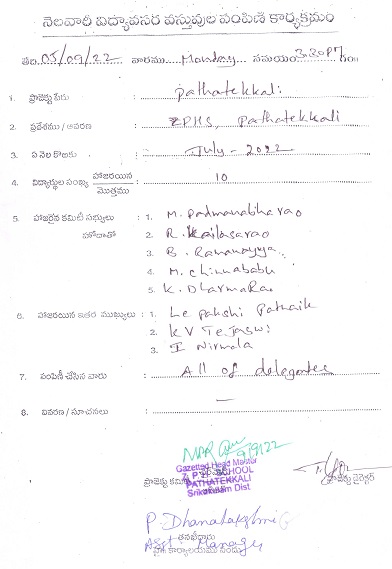 నెలవారీ విద్యావసర వస్తువుల పంపిణీ కార్యక్రమం
తేది: 05/09/22 వారము Monday సమయం 3.30 PM గం॥
1. ప్రాజెక్టు పేరు : Pathatekkali
2. ప్రదేశము / ఆవరణ : ZPHS, Pathatekkali
3. ఏ నెల కొఱకు : July - 2022
4. విద్యార్థుల సంఖ్య హాజరయిన / మొత్తము : 10
5. హాజరైన కమిటీ సభ్యులు : 1. M. Padmanabha rao
హోదాతో 2. R. Kailasarao
3. B. Ramanayya
4. M. Chinnababu
5. K. Dharma Rao
6. హాజరయిన ఇతర ముఖ్యులు : 1. Le pakshi Patnaik
2. K V Tejaswi
3. I Nirmala
7. పంపిణీ చేసిన వారు : All of delegates
8. వివరణ / సూచనలు : —
Gazetted Head Master
Z. P. H. SCHOOL
ప్రాజెక్టు కమిటీ PATHATEKKALI ప్రాజెక్టు డైరెక్టర్
Srikakulam Dist
P. Dhanalakshmi
తనిఖీదారు
Asst Manager